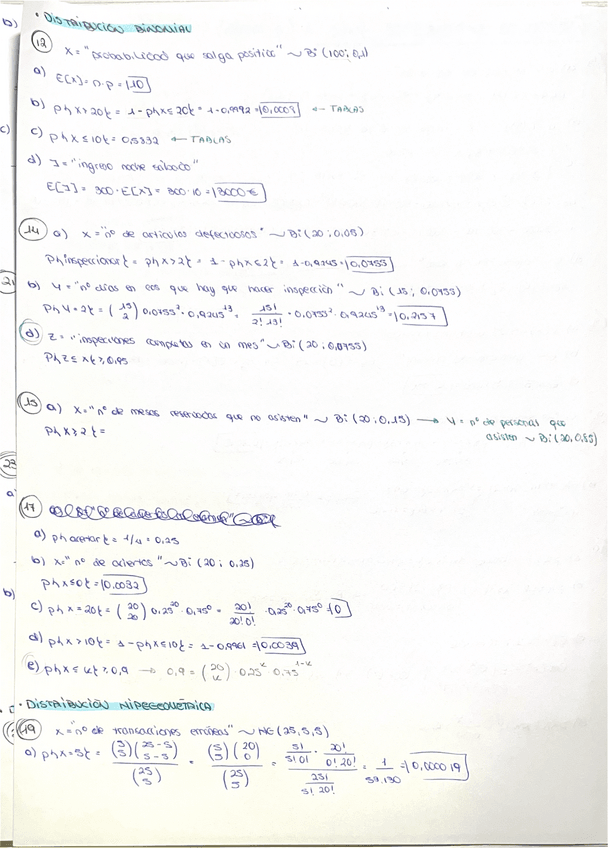 b)
• DISTRIBUCIÓN BINOMIAL
12 X = "probabilidad que salga positiva" ~ Bi (100; 0,1)
a) E[X] = n·p = 10
b) P{X>20} = 1 - P{X≤20} = 1 - 0,9992 = 0,0003 ← TABLAS
c)
c) P{X≤10} = 0,5832 ← TABLAS
d) J = "ingreso noche sábado"
E[J] = 300 · E[X] = 300 · 10 = 3000 €
14 a) X = "nº de artículos defectuosos" ~ Bi (20; 0,05)
P{inspeccionar} = P{X>2} = 1 - P{X≤2} = 1 - 0,9245 = 0,0755
21
b) Y = "nº días en los que hay que hacer inspección" ~ Bi (15; 0,0755)
P{Y=2} = (15 2) 0,0755² · 0,9245¹³ = 15!/2! 13! · 0,0755² · 0,9245¹³ = 0,2157
d) Z = "inspecciones completas en un mes" ~ Bi (20; 0,0755)
P{Z≤x} ≥ 0,95
15 a) X = "nº de mesas reservadas que no asisten" ~ Bi (20; 0,15) → Y = nº de personal que
asisten ~ Bi (20, 0,85)
P{X≥2} =
23
a)
17
a) P{acertar} = 1/4 = 0,25
b) X = "nº de aciertos" ~ Bi (20; 0,25)
P{X≤0} = 0,0032
b)
c) P{X=20} = (20 20) 0,25²⁰ · 0,75⁰ = 20!/20! 0! · 0,25²⁰ · 0,75⁰ = 0
d) P{X>10} = 1 - P{X≤10} = 1 - 0,9961 = 0,0039
e) P{X≤K} ≥ 0,9 → 0,9 = (20 K) · 0,25ᴷ · 0,75¹⁻ᴷ
• DISTRIBUCIÓN HIPEGEOMÉTRICA
19 X = "nº de transacciones erróneas" ~ HG (25, 5, 5)
a) P{X=5} = (5 5)(25-5 5-5)/(25 5) = (5 5)(20 0)/(25 5) = 5!/5! 0! · 20!/0! 20! / 25!/5! 20! = 1/53.130 = 0,000019